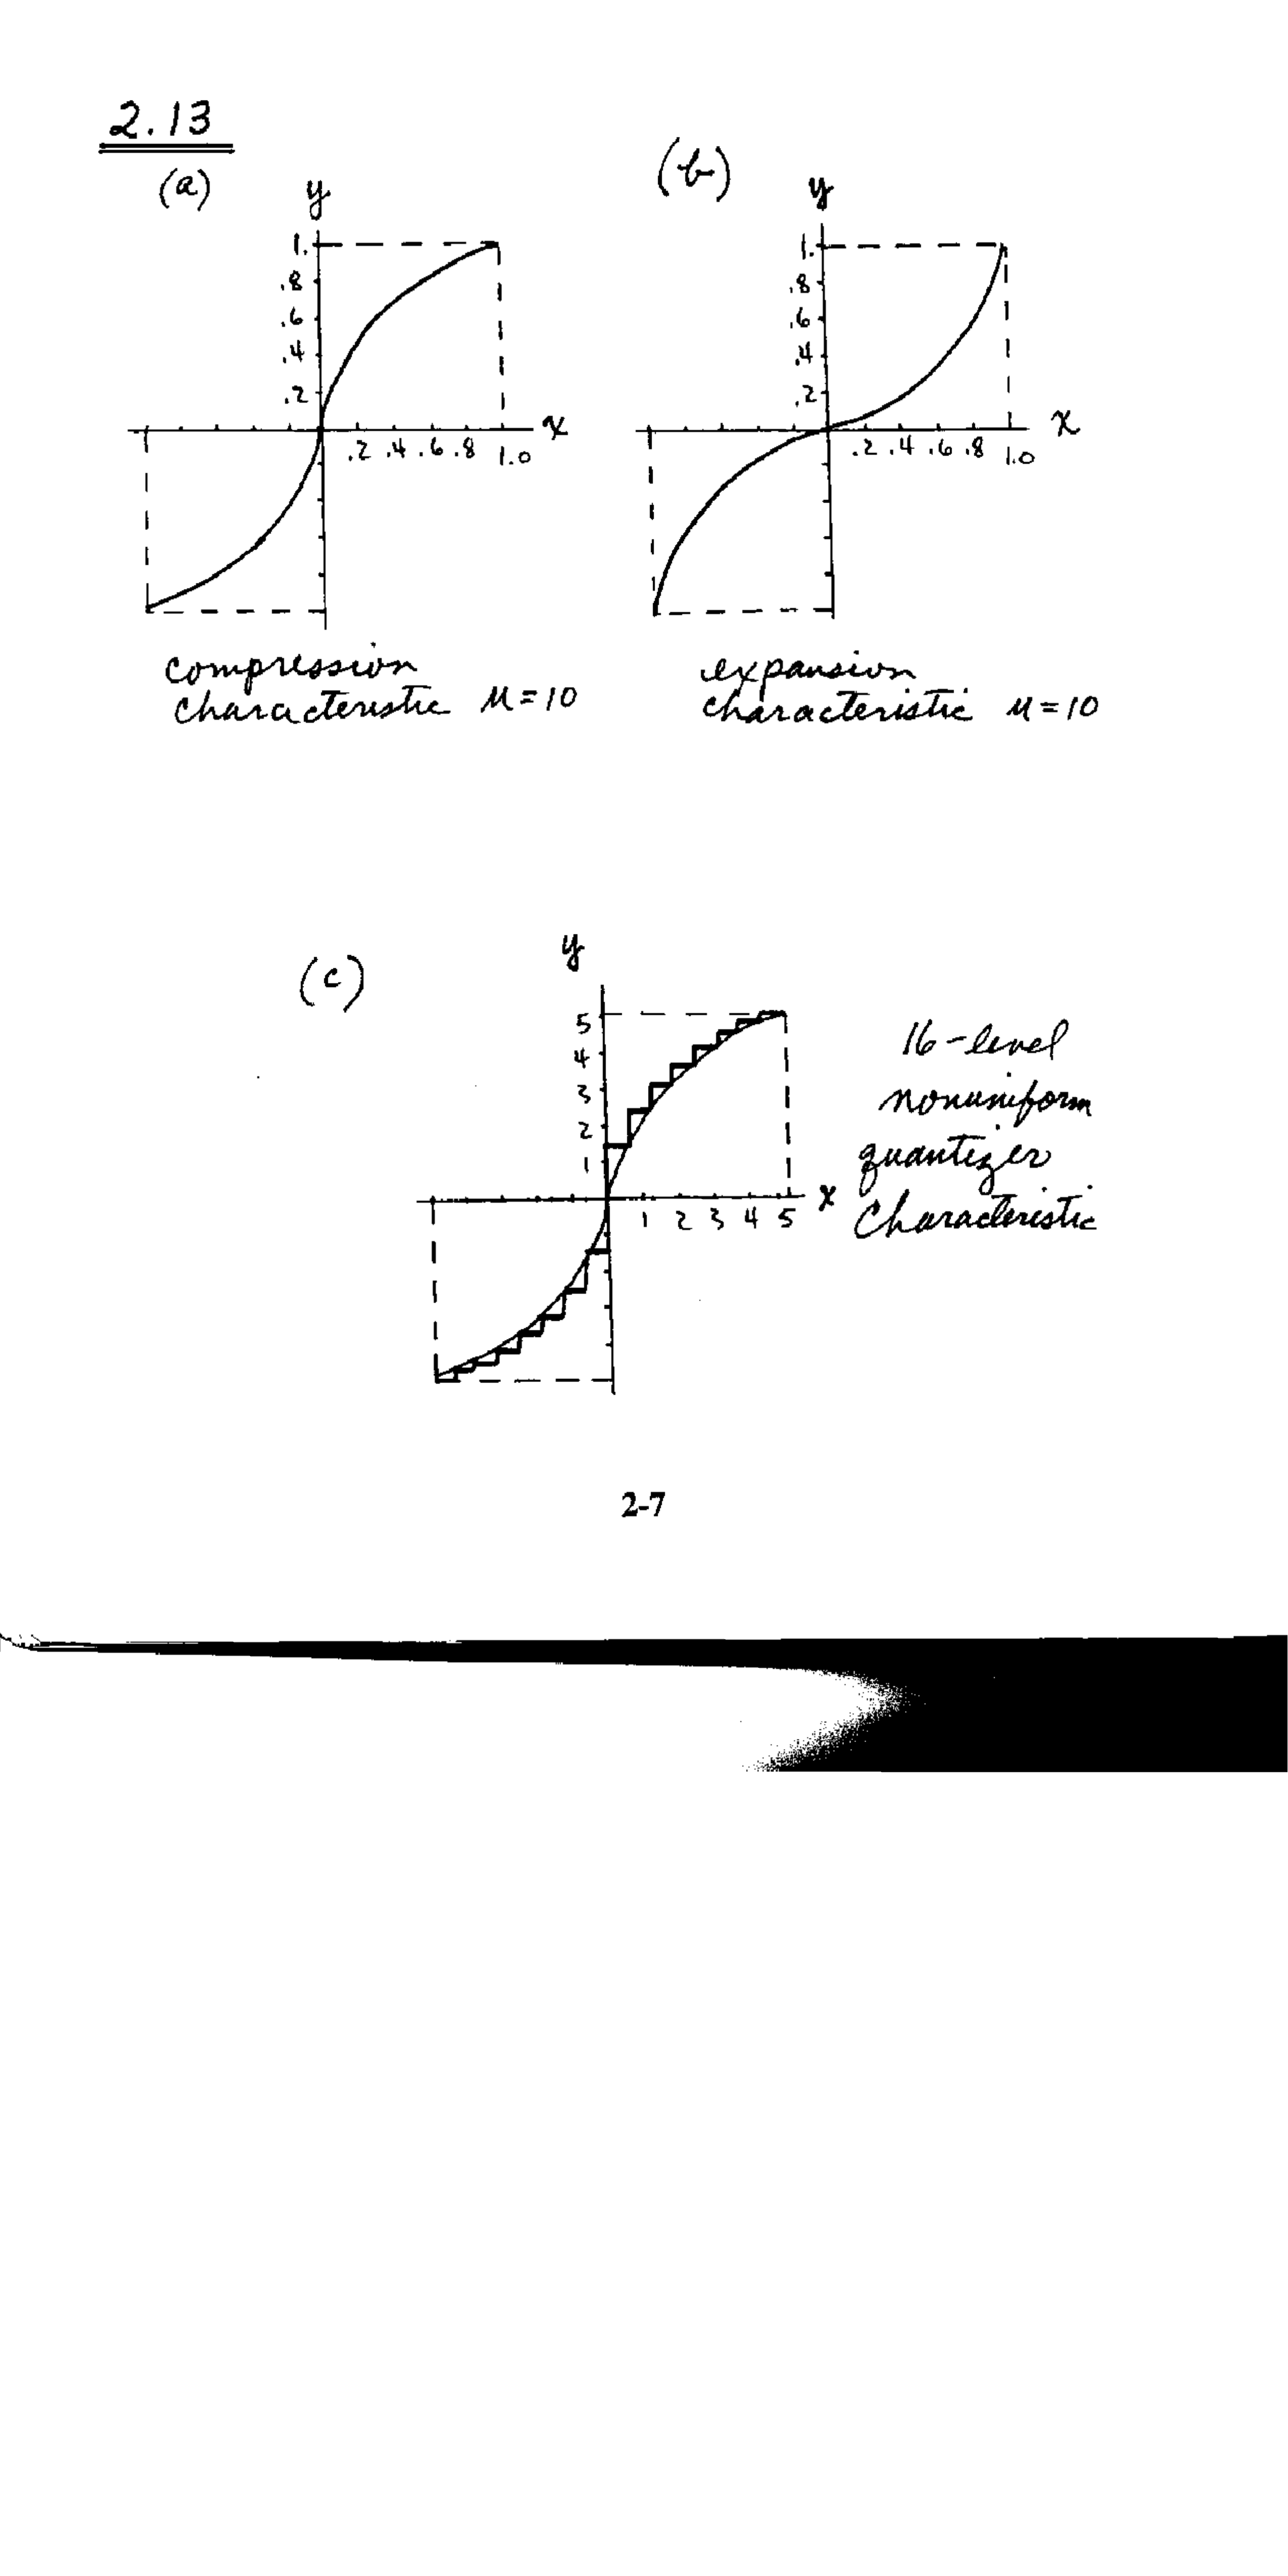 2.13
(a)
y
1.
.8
.6
.4
.2
x
.2 .4 .6 .8 1.0
compression
characteristic μ = 10
(b)
y
1.
.8
.6
.4
.2
x
.2 .4 .6 .8 1.0
expansion
characteristic μ = 10
(c)
y
5
4
3
2
1
x
1 2 3 4 5
16-level
nonuniform
quantizer
characteristic
2-7